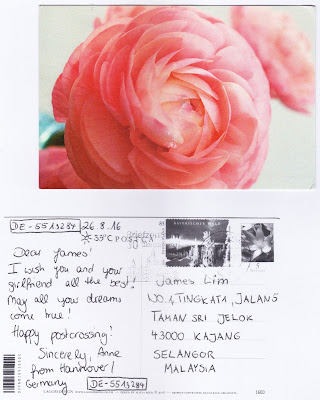 DE-5513284
26.8.16
☀ 33°C
POSTCA
Briefze
BAYERISCHER WALD
Dear James!
I wish you and your
girlfriend all the best!
May all your dreams
come true!
Happy postcrossing!
Sincerely, Anne
from Hannover/
Germany
DE-5513284
James Lim
NO.1, TINGKAT1, JALAN5
TAMAN SRI JELOK
43000 KAJANG
SELANGOR
MALAYSIA